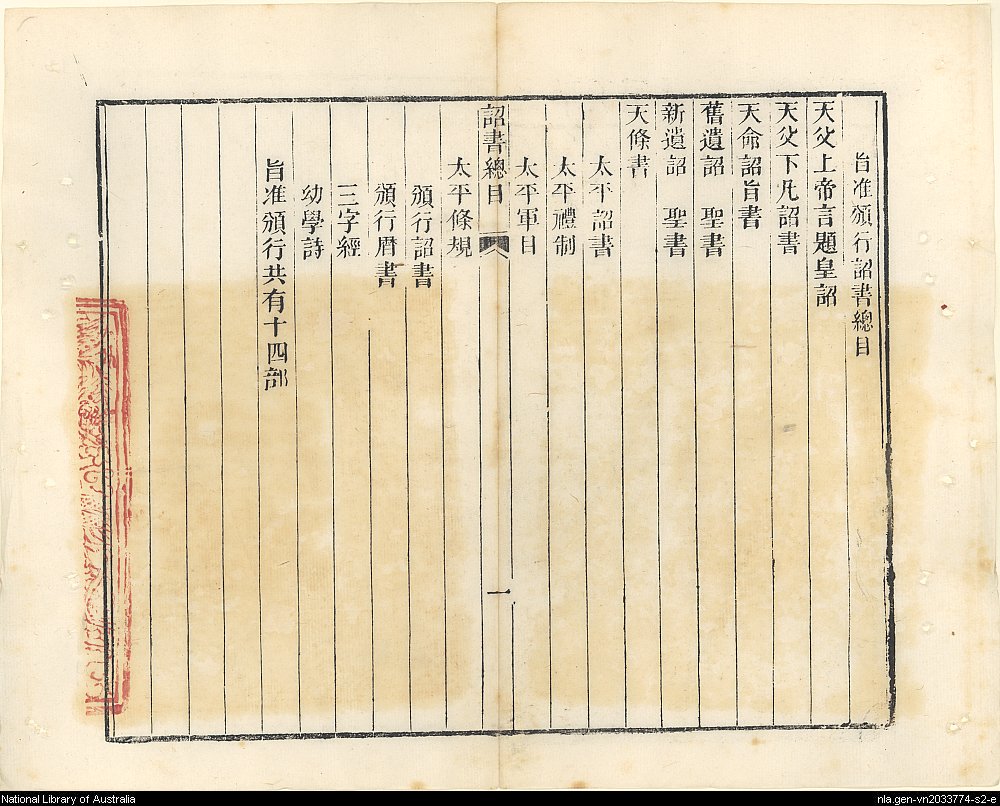 旨准頒行詔書總目
天父上帝言題皇詔
天父下凡詔書
天命詔旨書
舊遺詔 聖書
新遺詔 聖書
天條書
太平詔書
太平禮制
太平軍目
詔書總目 一
太平條規
頒行詔書
頒行曆書
三字經
幼學詩
旨准頒行共有十四部
National Library of Australia
nla.gen-vn2033774-s2-e